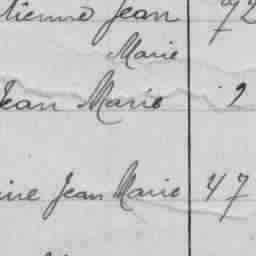 tienne Jean 72
Marie
Jean Marie 2
Jean Marie 47